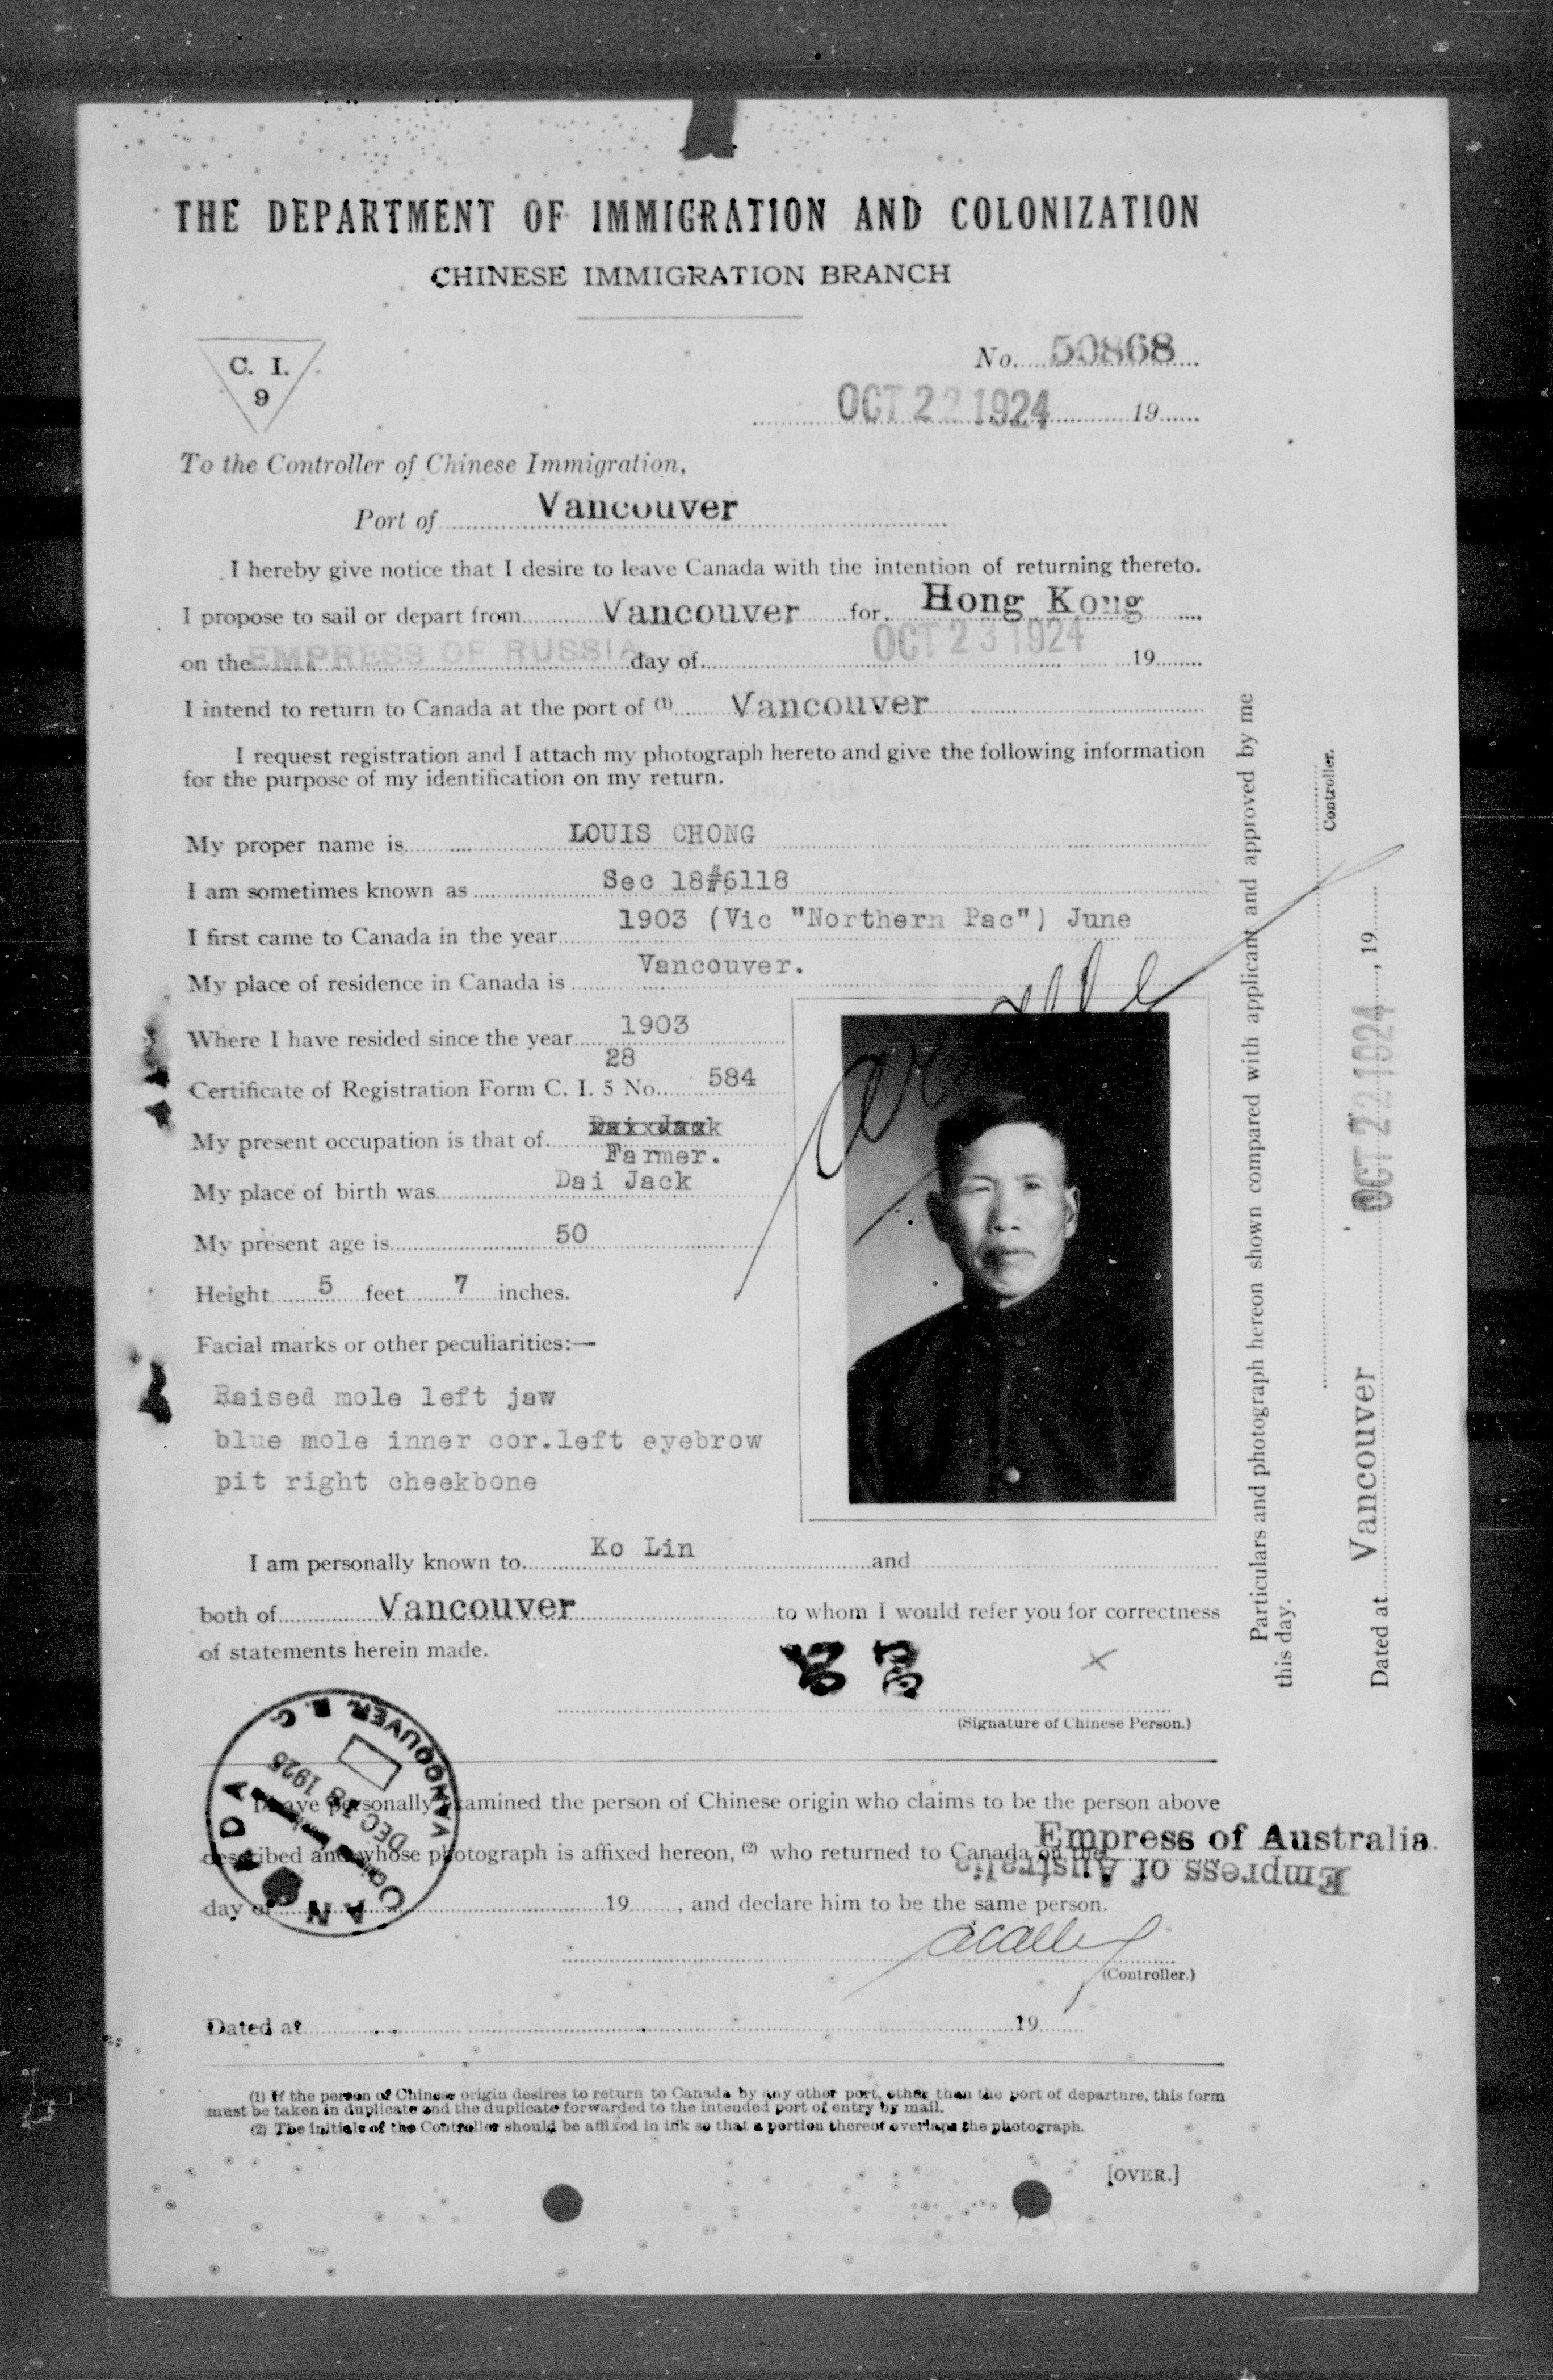 THE DEPARTMENT OF IMMIGRATION AND COLONIZATION
CHINESE IMMIGRATION BRANCH
C. I.
9
No. 50868
OCT 22 1924 19
To the Controller of Chinese Immigration,
Port of Vancouver
I hereby give notice that I desire to leave Canada with the intention of returning thereto.
I propose to sail or depart from Vancouver for Hong Kong
on the EMPRESS OF RUSSIA day of OCT 23 1924 19
I intend to return to Canada at the port of (1) Vancouver
I request registration and I attach my photograph hereto and give the following information
for the purpose of my identification on my return.
My proper name is LOUIS CHONG
I am sometimes known as Sec 18#6118
I first came to Canada in the year 1903 (Vic "Northern Pac") June
My place of residence in Canada is Vancouver.
Where I have resided since the year 1903
28
Certificate of Registration Form C. I. 5 No. 584
My present occupation is that of
Farmer.
My place of birth was Dai Jack
My present age is 50
Height 5 feet 7 inches.
Facial marks or other peculiarities:—
Raised mole left jaw
blue mole inner cor.left eyebrow
pit right cheekbone
I am personally known to Ko Lin and
both of Vancouver to whom I would refer you for correctness
of statements herein made.
X
(Signature of Chinese Person.)
I have personally examined the person of Chinese origin who claims to be the person above
described and whose photograph is affixed hereon, (2) who returned to Canada on the Empress of Australia
Empress of Australia
day of 19, and declare him to be the same person.
(Controller.)
Dated at 19
(1) If the person of Chinese origin desires to return to Canada by any other port, other than the port of departure, this form
must be taken in duplicate and the duplicate forwarded to the intended port of entry by mail.
(2) The initials of the Controller should be affixed in ink so that a portion thereof overlaps the photograph.
[OVER.]
VANCOUVER, B. C.
DEC 1925
CANADA
Particulars and photograph hereon shown compared with applicant and approved by me
this day.
Controller.
Dated at Vancouver OCT 22 1924, 19